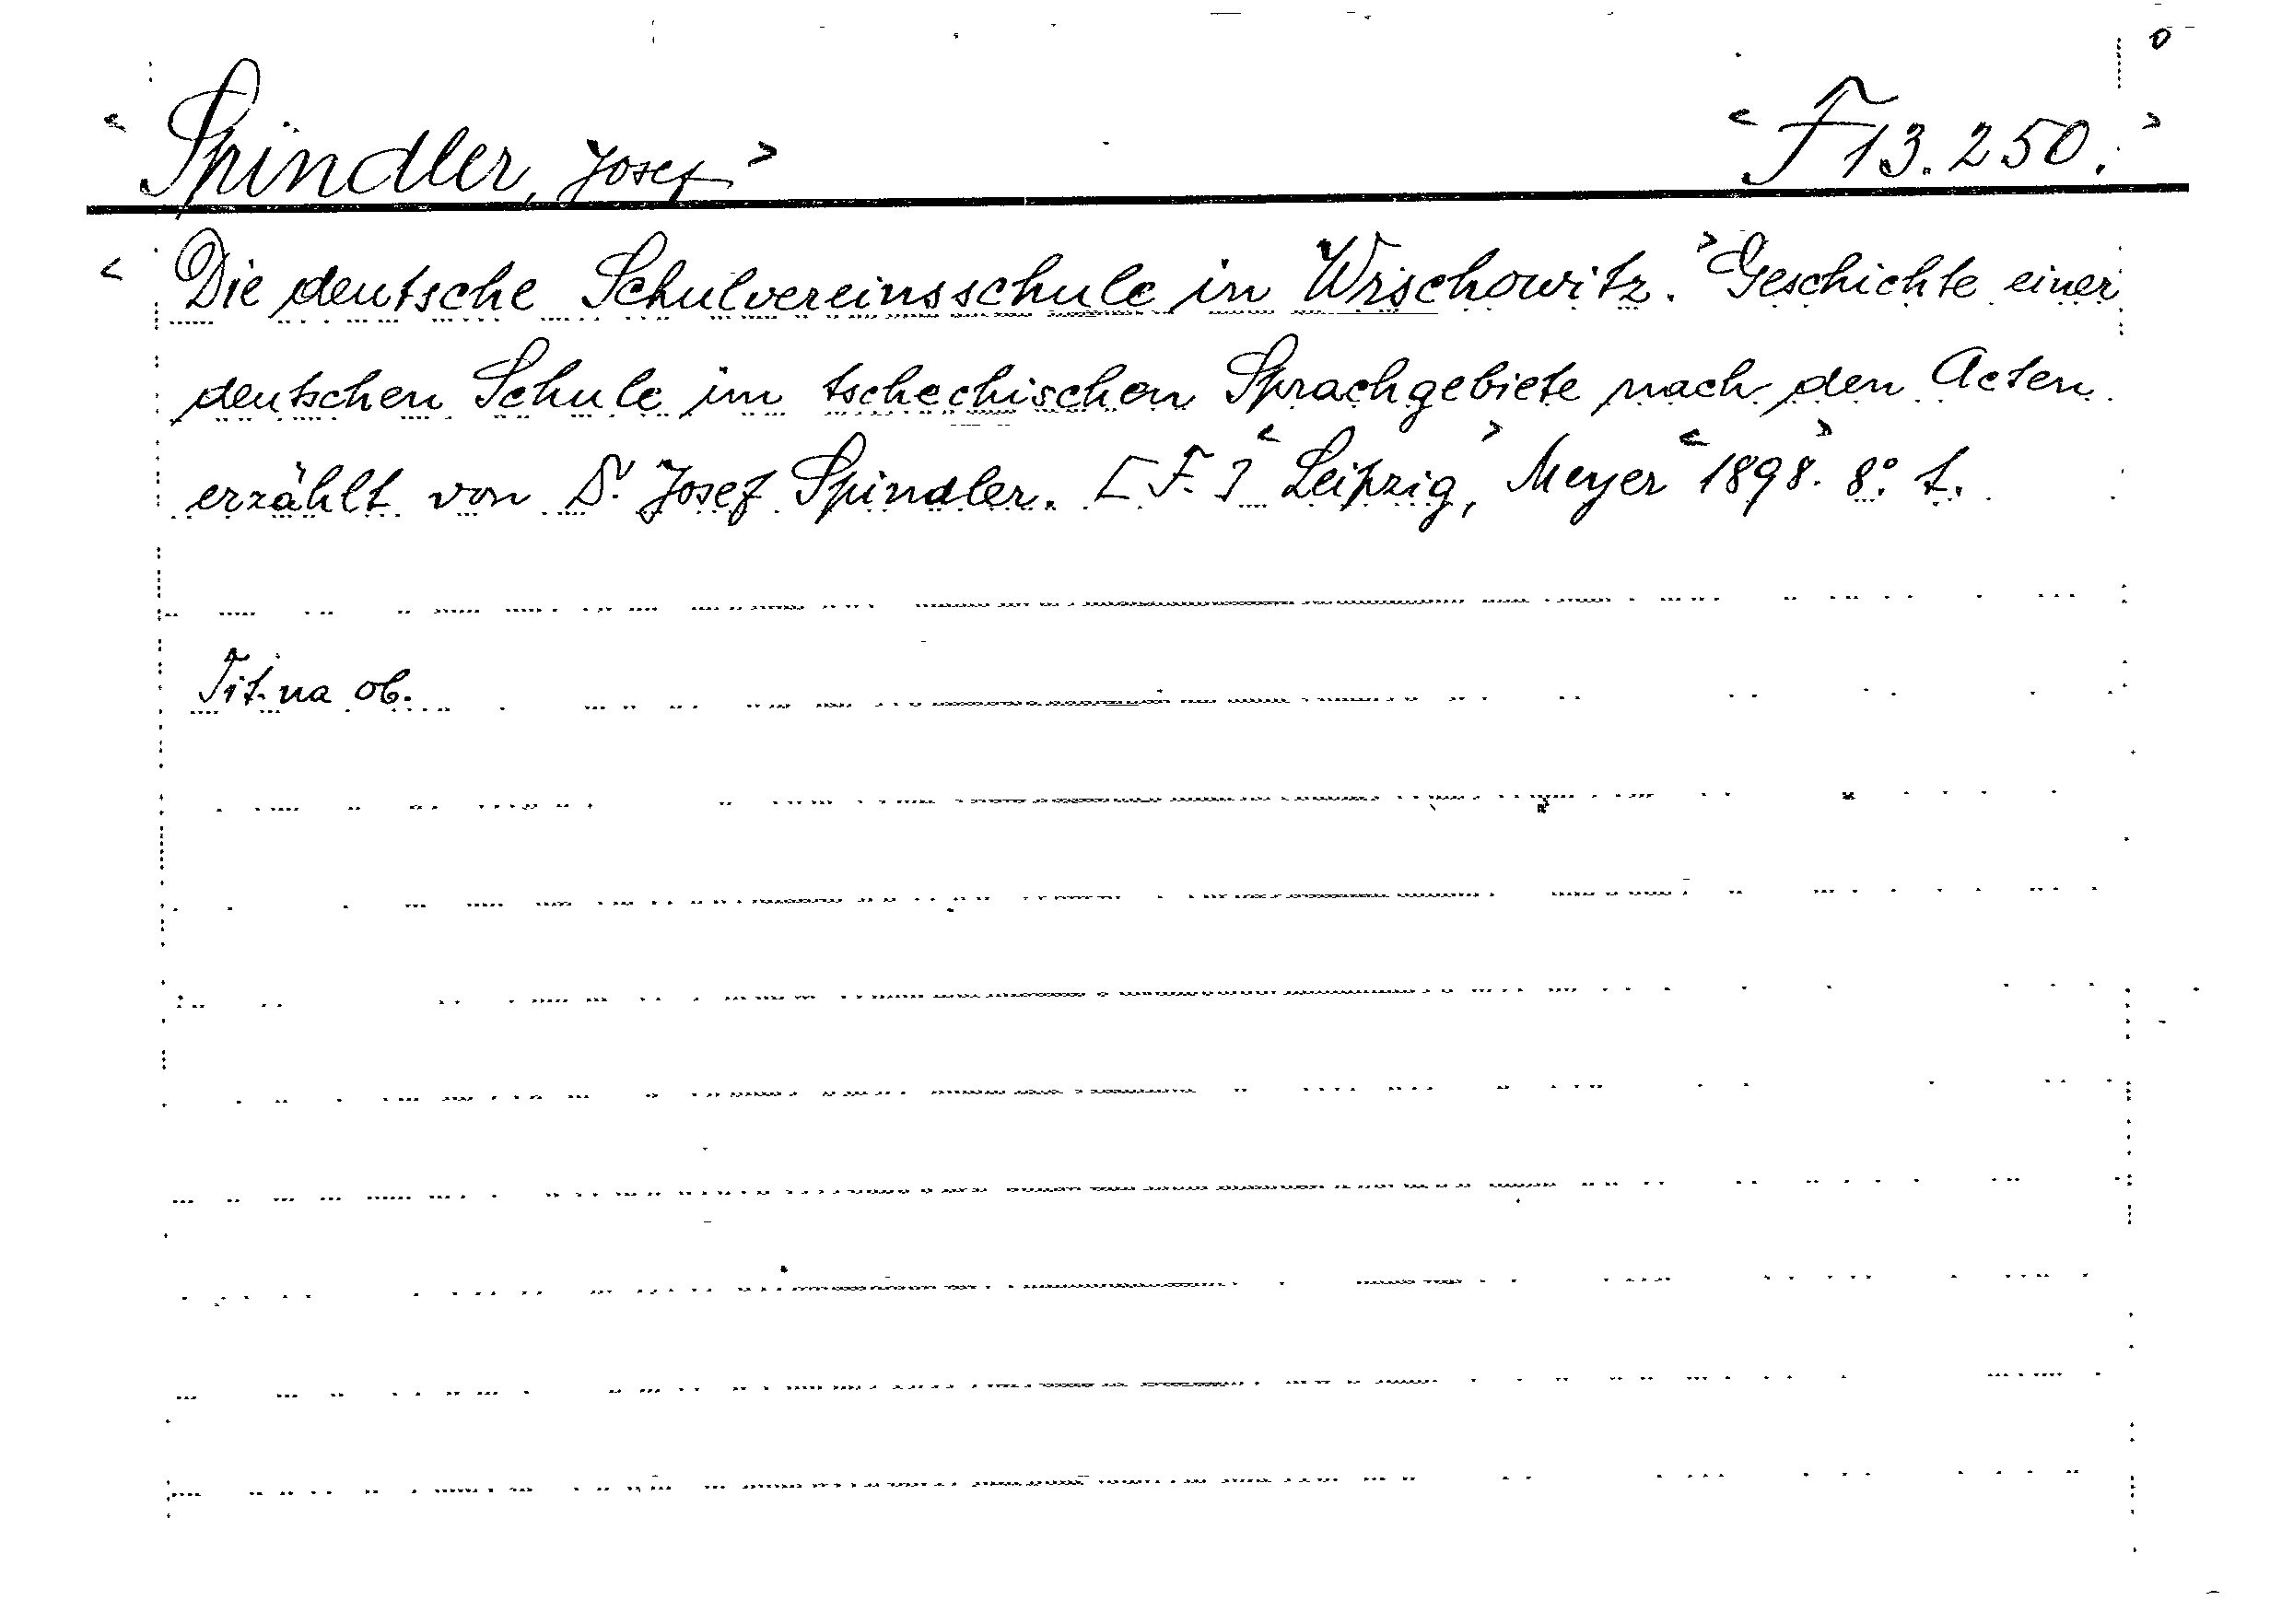 < Spindler, Josef > < F 13.250. >
< Die deutsche Schulvereinsschule in Wrschowitz. > Geschichte einer
deutschen Schule im tschechischen Sprachgebiete nach den Acten
erzählt von Dr. Josef Spindler. [F.] < Leipzig, > Meyer < 1898. > 8°.
Tit. na ob.